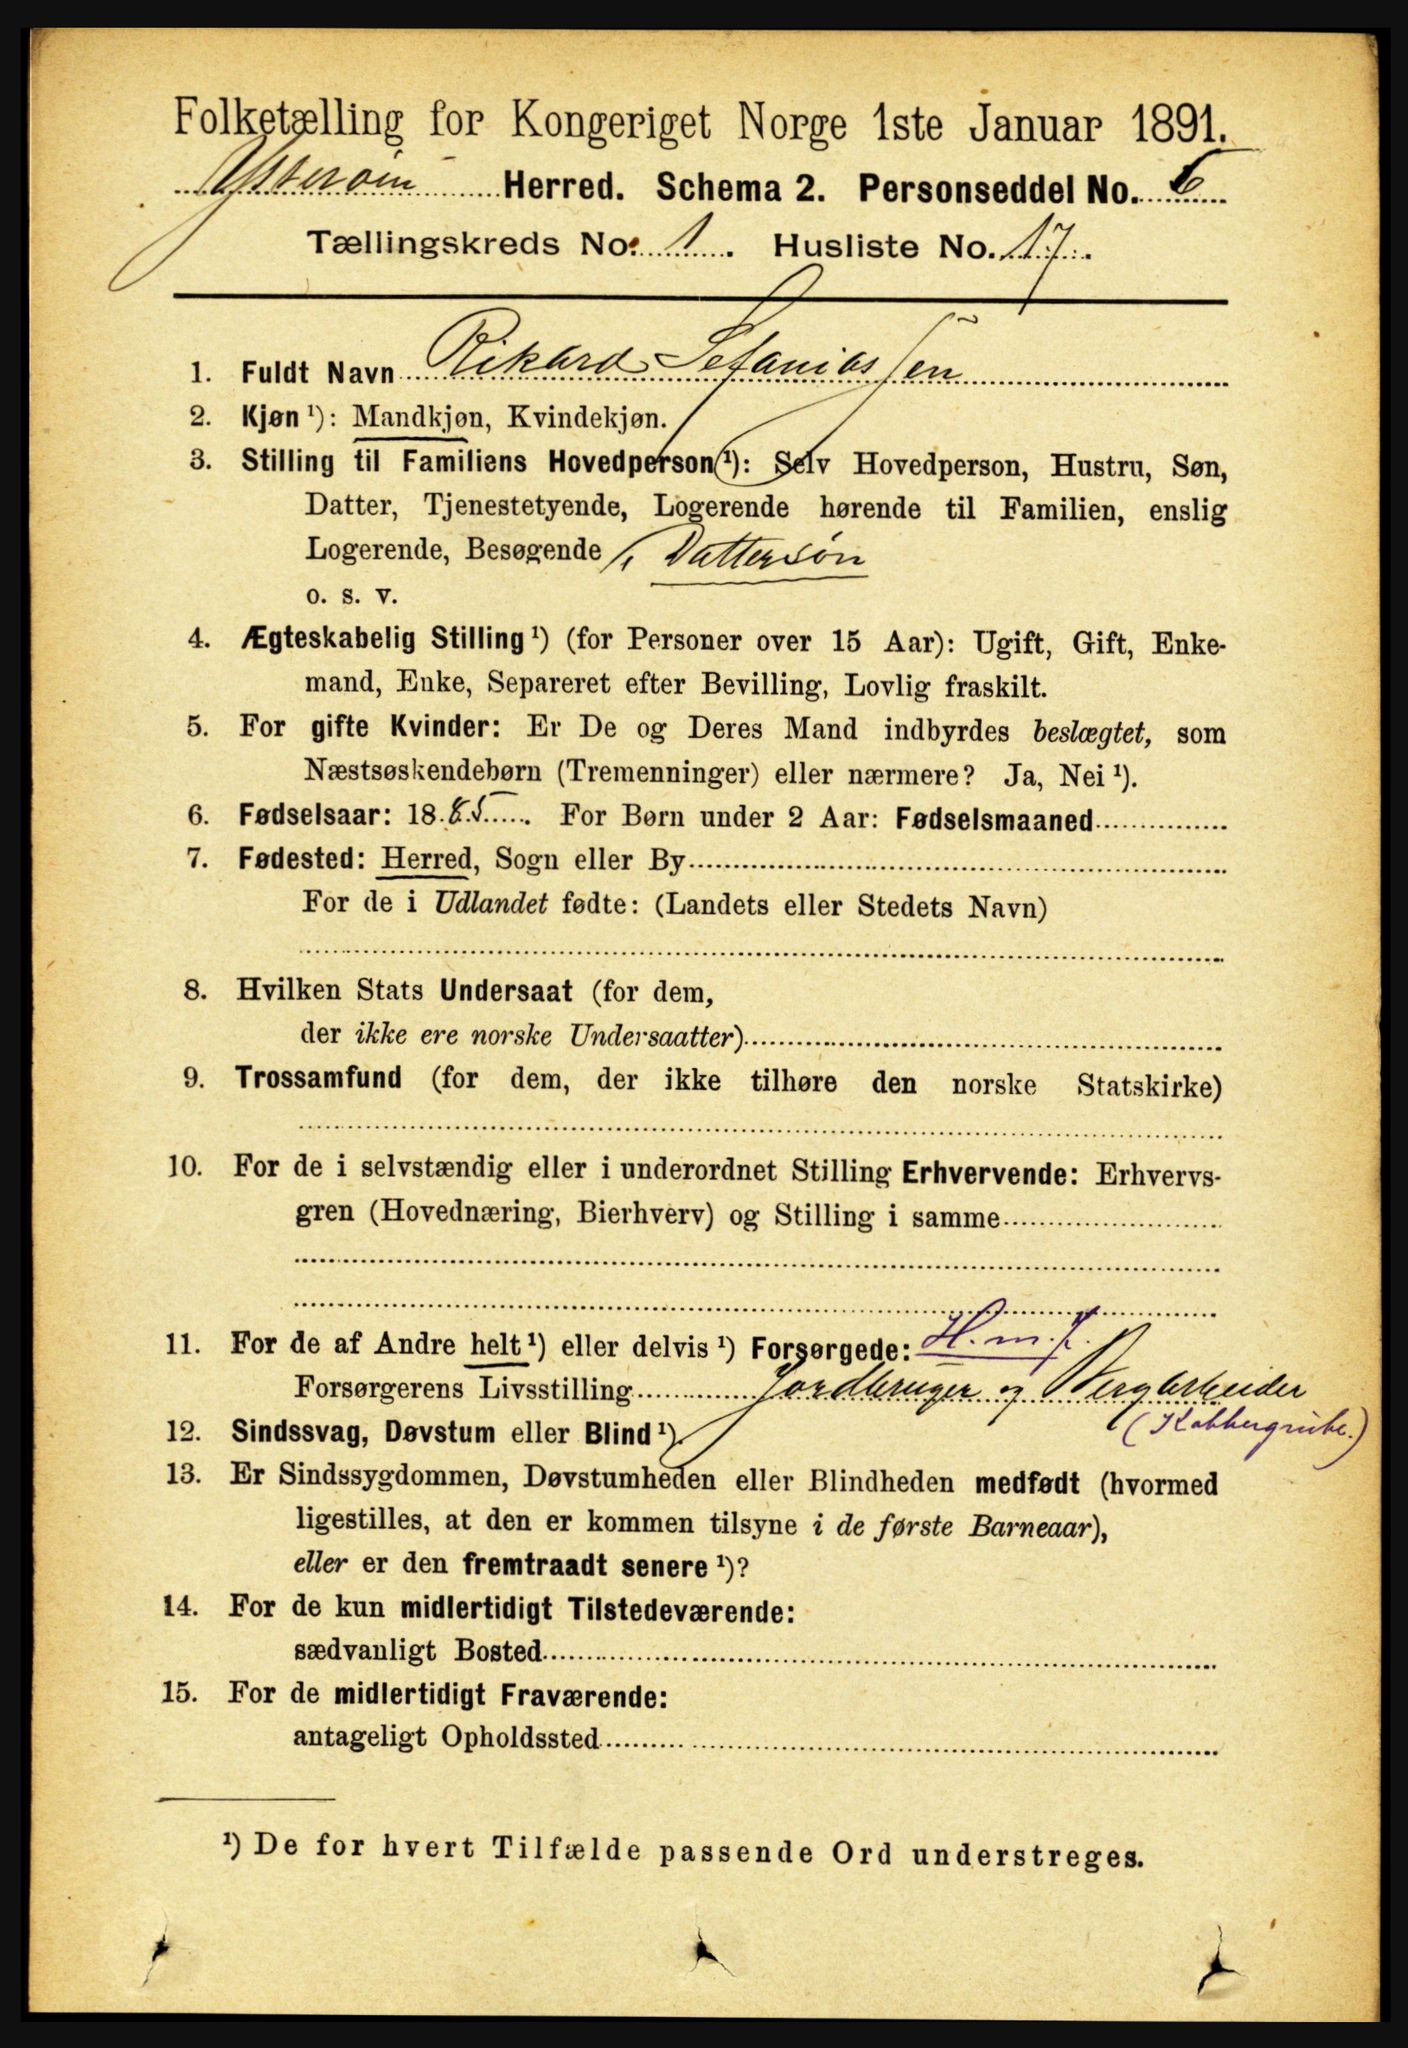 Folketælling for Kongeriget Norge 1ste Januar 1891.
Herred. Schema 2. Personseddel No. 6
Tællingskreds No. 1. Husliste No. 17.
1. Fuldt Navn Rikard Sefaniassen
2. Kjøn ¹): Mandkjøn, Kvindekjøn.
3. Stilling til Familiens Hovedperson ¹): Selv Hovedperson, Hustru, Søn,
Datter, Tjenestetyende, Logerende hørende til Familien, enslig
Logerende, Besøgende, Dattersøn
o. s. v.
4. Ægteskabelig Stilling ¹) (for Personer over 15 Aar): Ugift, Gift, Enke-
mand, Enke, Separeret efter Bevilling, Lovlig fraskilt.
5. For gifte Kvinder: Er De og Deres Mand indbyrdes beslægtet, som
Næstsøskendebørn (Tremenninger) eller nærmere? Ja, Nei ¹).
6. Fødselsaar: 1885. For Børn under 2 Aar: Fødselsmaaned
7. Fødested: Herred, Sogn eller By
For de i Udlandet fødte: (Landets eller Stedets Navn)
8. Hvilken Stats Undersaat (for dem,
der ikke ere norske Undersaatter)
9. Trossamfund (for dem, der ikke tilhøre den norske Statskirke)
10. For de i selvstændig eller i underordnet Stilling Erhvervende: Erhvervs-
gren (Hovednæring, Bierhverv) og Stilling i samme
11. For de af Andre helt ¹) eller delvis ¹) Forsørgede: H. m. f.
Forsørgerens Livsstilling Jordbruger og Bergarbeider
(Kobbergrube.)
12. Sindssvag, Døvstum eller Blind ¹).
13. Er Sindssygdommen, Døvstumheden eller Blindheden medfødt (hvormed
ligestilles, at den er kommen tilsyne i de første Barneaar),
eller er den fremtraadt senere ¹)?
14. For de kun midlertidigt Tilstedeværende:
sædvanligt Bosted
15. For de midlertidigt Fraværende:
antageligt Opholdssted
¹) De for hvert Tilfælde passende Ord understreges.